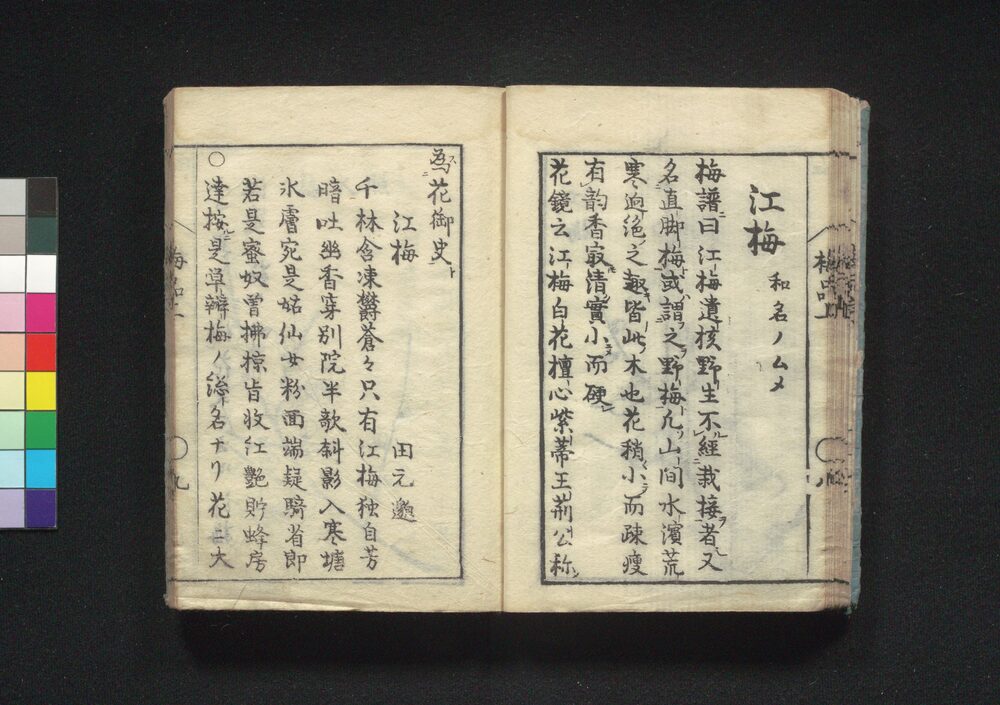 江梅 和名ノムメ
梅譜曰江梅遺核野生不經栽接者又
名直脚梅或謂之野梅凢山間水濱荒
寒迥絶之趣皆此木也花稍小而疎瘦
有韵香㝡清實小而硬
花鏡云江梅白花檀心紫蒂王荊公称
為花御史
江梅 田元邈
千林含凍欝蒼々只有江梅独自芳
暗吐幽香穿別院半欹斜影入寒塘
氷膚宛是姑仙女粉面端疑騎省郎
若是蜜奴曽拂掠肯收紅艶貯蜂房
○達按是單瓣梅ノ総名ナリ花ニ大
梅品上
九